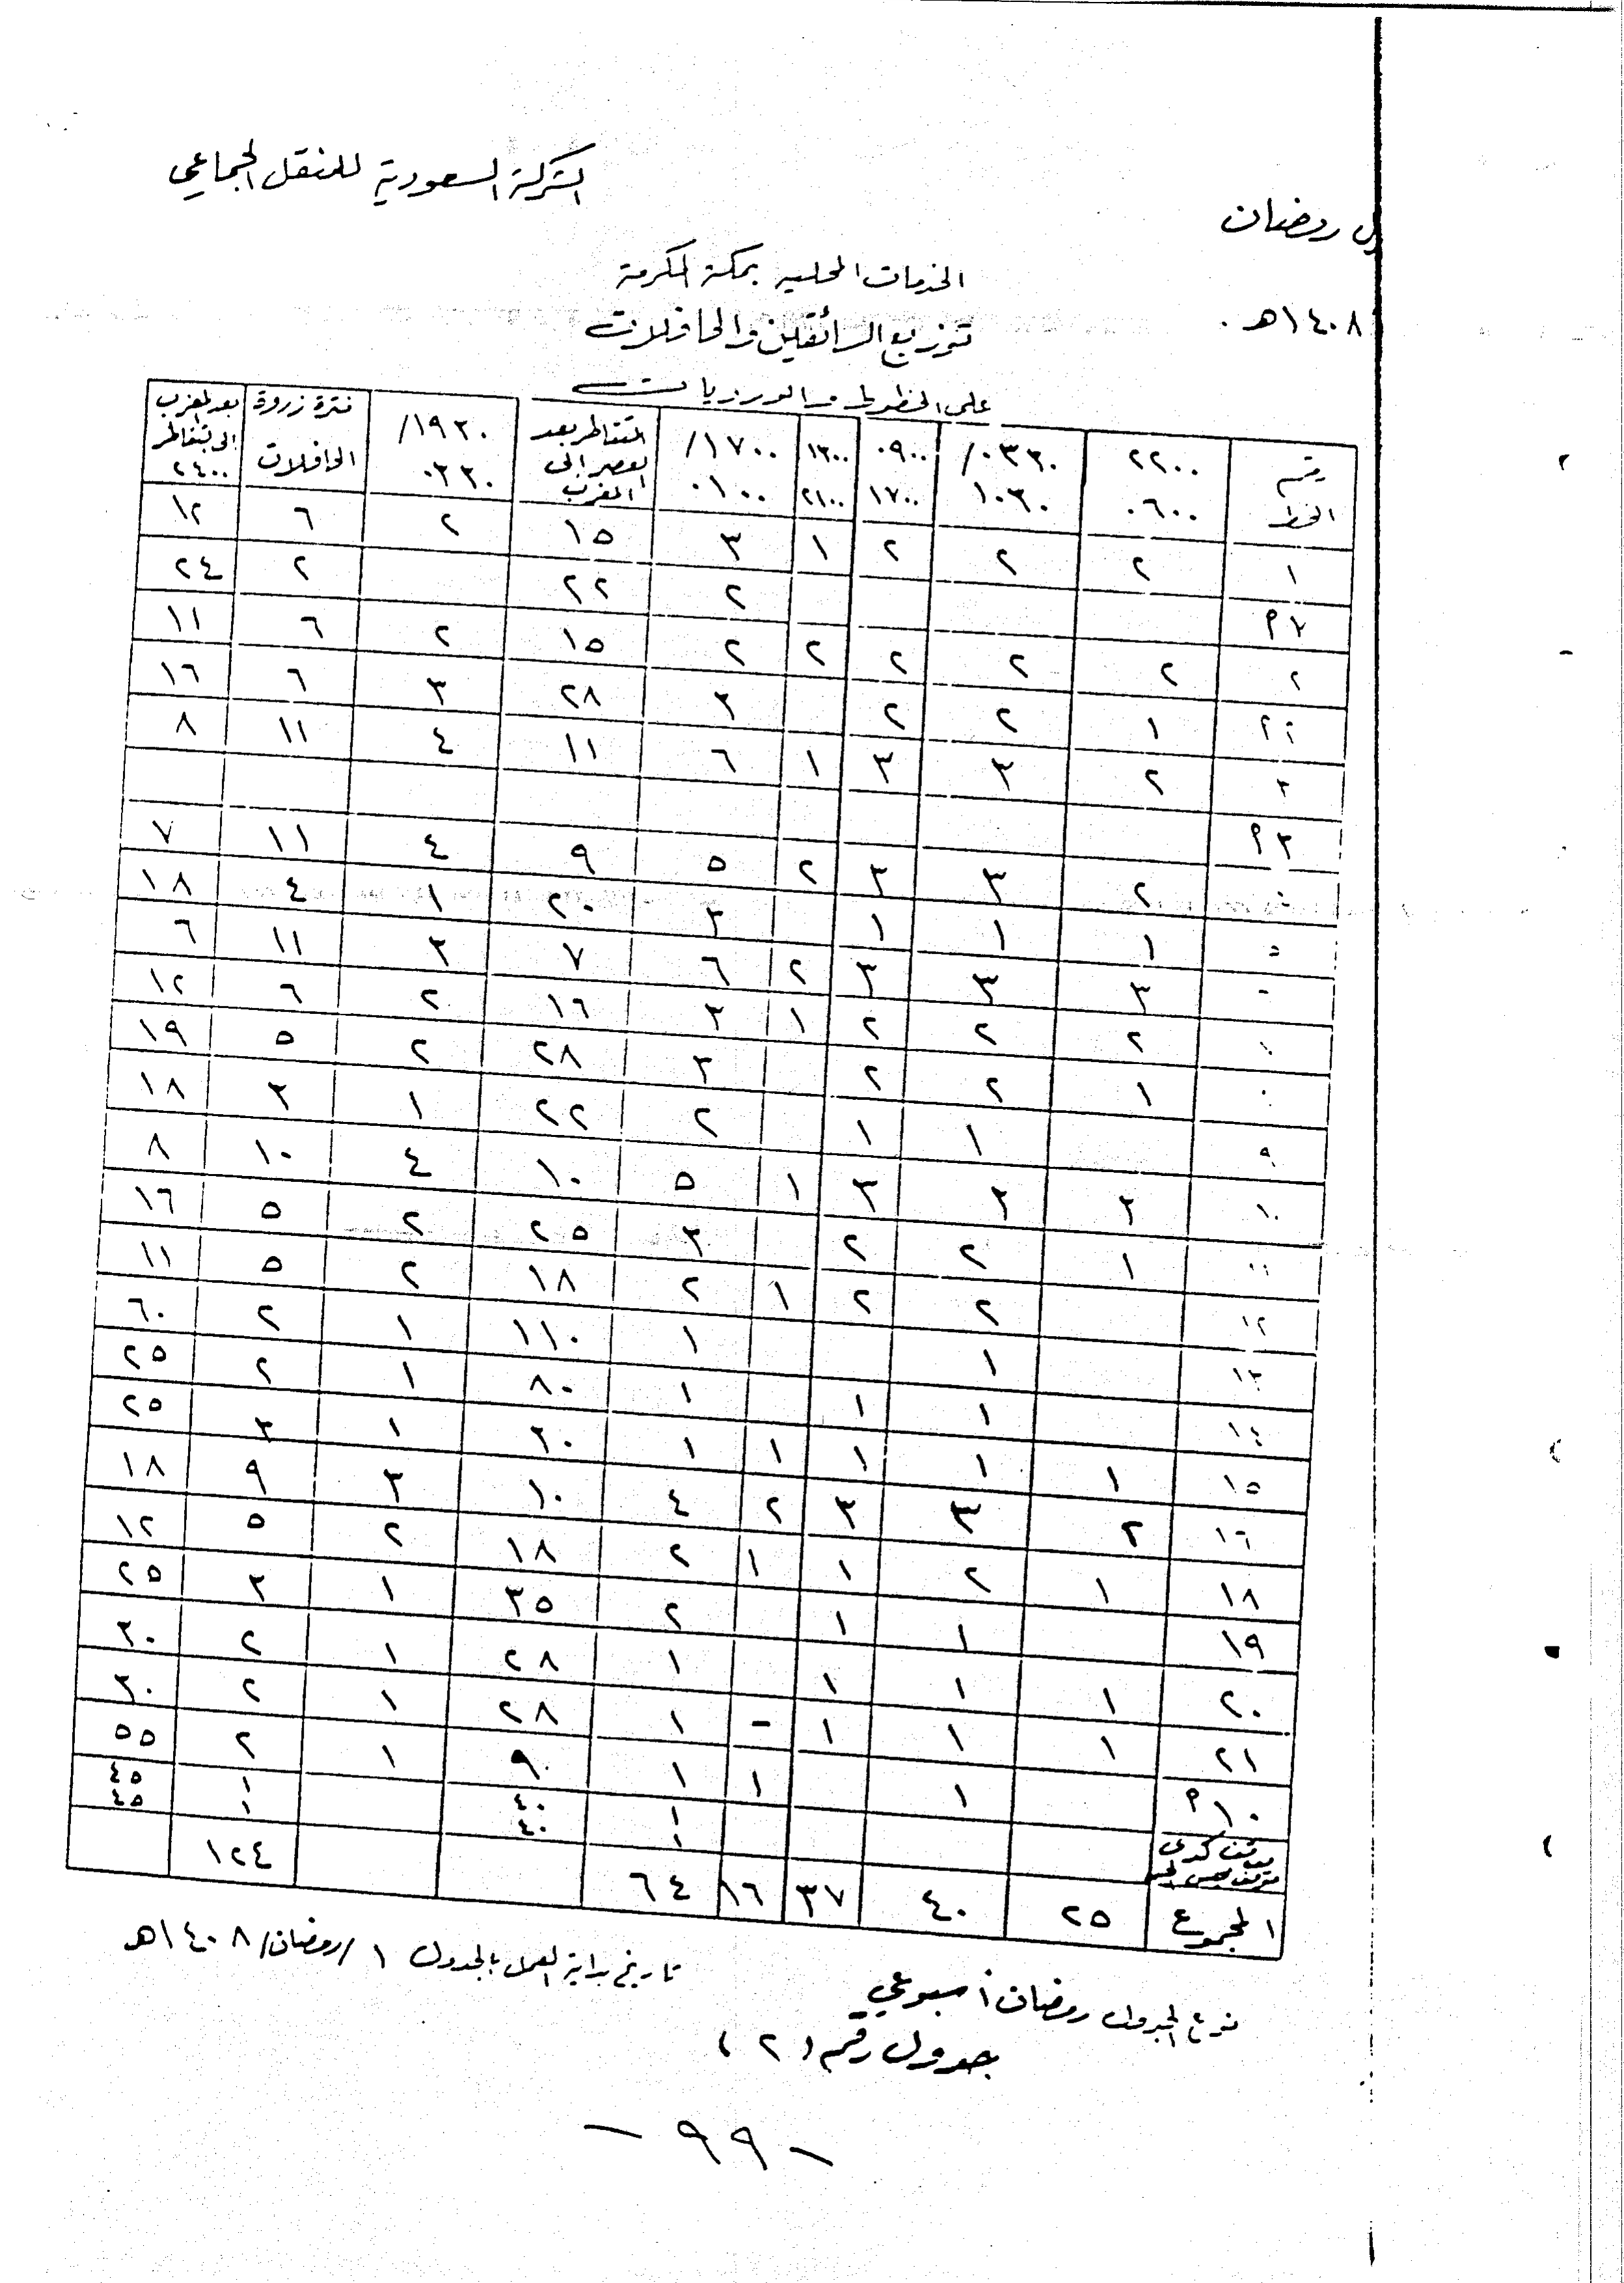 الشركة السعودية للنقل الجماعي
رمضان
١٤٠٨هـ .
الخدمات المحليه بمكة المكرمة
توزيع السائقين والحافلات
على الخطوط والورديات
رقم الخط | ٢٢٠٠ ٠٦٠٠ | ٠٣٣٠/ ١٠٣٠ | ٠٩٠٠ ١٧٠٠ | ١٣٠٠ ٢١٠٠ | ١٧٠٠/ ٠١٠٠ | التقاطر بعد العصر الى المغرب | ١٩٣٠/ ٠٣٣٠ | فترة زروة الحافلات | بعد المغرب الى التقاطر ٢٤٠٠
١ | ٢ | ٢ | ٢ | ١ | ٣ | ١٥ | ٢ | ٦ | ١٢
٧م | | | | | ٢ | ٢٢ | | ٢ | ٢٤
٢ | ٢ | ٢ | ٢ | ٢ | ٢ | ١٥ | ٢ | ٦ | ١١
| ١ | ٢ | ٢ | | ٣ | ٢٨ | ٣ | ٦ | ١٦
٣ | ٢ | ٣ | ٣ | ١ | ٦ | ١١ | ٤ | ١١ | ٨
٣م
| ٢ | ٣ | ٣ | ٢ | ٥ | ٩ | ٤ | ١١ | ٧
| ١ | ١ | ١ | | ٣ | ٢٠ | ١ | ٤ | ١٨
| ٣ | ٣ | ٣ | ٢ | ٦ | ٧ | ٣ | ١١ | ٦
| ٢ | ٢ | ٢ | ١ | ٣ | ١٦ | ٢ | ٦ | ١٢
| ١ | ٢ | ٢ | | ٣ | ٢٨ | ٢ | ٥ | ١٩
٩ | | ١ | ١ | | ٢ | ٢٢ | ١ | ٣ | ١٨
١٠ | ٣ | ٣ | ٣ | ١ | ٥ | ١٠ | ٤ | ١٠ | ٨
١١ | ١ | ٢ | ٢ | | ٣ | ٢٥ | ٢ | ٥ | ١٦
١٢ | | ٢ | ٢ | ١ | ٢ | ١٨ | ٢ | ٥ | ١١
١٣ | | ١ | | | ١ | ١١٠ | ١ | ٢ | ٦٠
١٤ | | ١ | ١ | | ١ | ٨٠ | ١ | ٢ | ٢٥
١٥ | ١ | ١ | ١ | ١ | ١ | ٣٠ | ١ | ٣ | ٢٥
١٦ | ٢ | ٣ | ٣ | ٢ | ٤ | ١٠ | ٣ | ٩ | ١٨
١٨ | ١ | ٢ | ١ | ١ | ٢ | ١٨ | ٢ | ٥ | ١٢
١٩ | | ١ | ١ | | ٢ | ٣٥ | ١ | ٣ | ٢٥
٢٠ | ١ | ١ | ١ | | ١ | ٢٨ | ١ | ٢ | ٣٠
٢١ | ١ | ١ | ١ | - | ١ | ٢٨ | ١ | ٢ | ٣٠
١٠م | | ١ | | ١ | ١ | ٩٠ | ١ | ٢ | ٥٥
موقف كدى | | | | | ١ | ٤٠ | | ١ | ٤٥
موقف | | | | | ١ | ٤٠ | | ١ | ٤٥
المجموع | ٢٥ | ٤٠ | ٣٧ | ١٦ | ٦٤ | | | ١٢٤
تاريخ بداية العمل بالجدول ١ /رمضان/ ١٤٠٨هـ
نوع الجدول رمضان أسبوعي
جدول رقم (٢)
- ٩٩ -